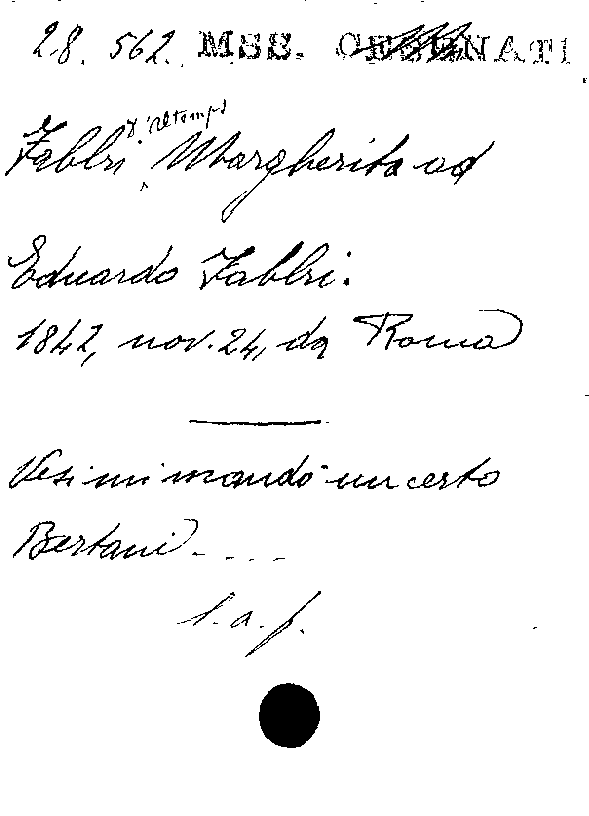 28. 562. MSS. CESENATI
d'Altemps
Fabbri, Margherita ad
Eduardo Fabbri.
1842, nov. 24, da Roma
mi mandò un certo
Bertani - - - -
l. a. f.